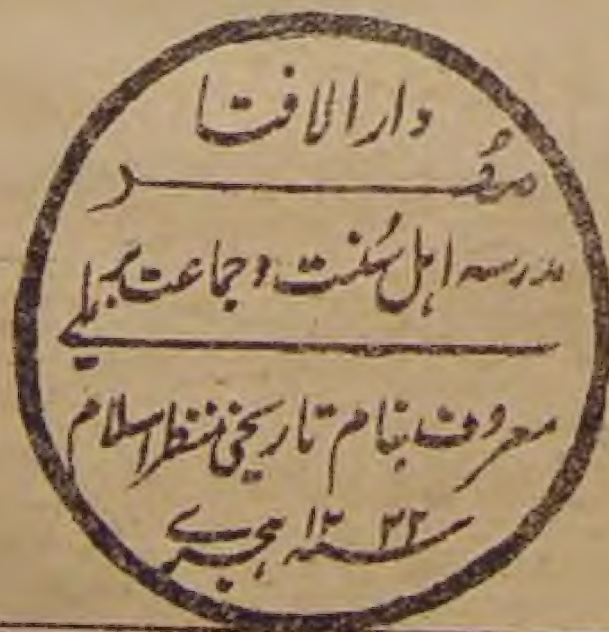 دار الافتا
مہر
مدرسہ اہل سُنت و جماعت بریلی
معروف بنام تاریخی منظر اسلام
سنہ ۱۳۲۲ ہجری